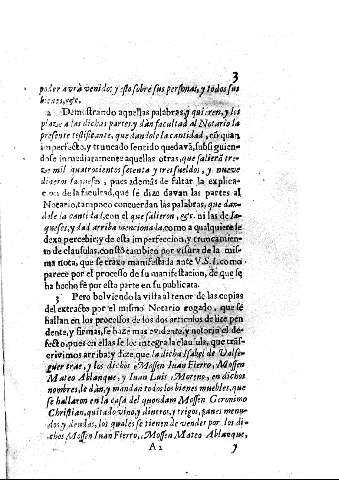 3
poder avrà venido; y esto sobre sus personas, y todos sus
bienes, &c.
2 Demostrando aquellas palabras, y quieren, y les
plaze a las dichas partes, y dàn facultad al Notario la
presente testificante, que dandole la cantidad, en quan
imperfecto, y truncado sentido quedava, subsiguien-
dose inmediatamente aquellas otras, que salieron tre-
ze mil quatrocientos setenta y tres sueldos, y nueve
dineros Iaqueses, pues ademàs de faltar la explica-
cion de la facultad, que se dize davan las partes al
Notario, tampoco concuerdan las palabras, que dan-
dole la cantidad, con el que salieron, &c. ni las de Ia-
queses, y dad arriba mencionada, como a qualquiere se
dexa percebir; y de esta imperfeccion, y truncamien-
to de clausulas, constò tambien por visura de la mis-
ma nota, que se traxo manifestada ante V.S.I. como
parece por el processo de su manifestacion, de que se
ha hecho fè por esta parte en su publicata.
3 Pero bolviendo la vista al tenor de las copias
del extracto por el mismo Notario rogado, que se
hallan en los processos de los dos articulos de lite pen-
dente, y firmas, se haze mas evidente, y notorio el de-
fecto, pues en ellas se lee integra la clausula, que tras-
crivimos arriba; y dize, que la dicha Isabel de Valse-
guer trae, y los dichos Mossen Iuan Fierro, Mossen
Mateo Ablanque, y Iuan Luis Moreno, en dichos
nombres, le dàn, y mandan todos los bienes muebles, que
se hallaron en la casa del quondam Mossen Geronimo
Christian, quitado vino, y dineros, y trigos, panes menu-
dos, y deudas, los quales se tienen de vender por los di-
chos Mossen Iuan Fierro, Mossen Mateo Ablanque,
A 2 y